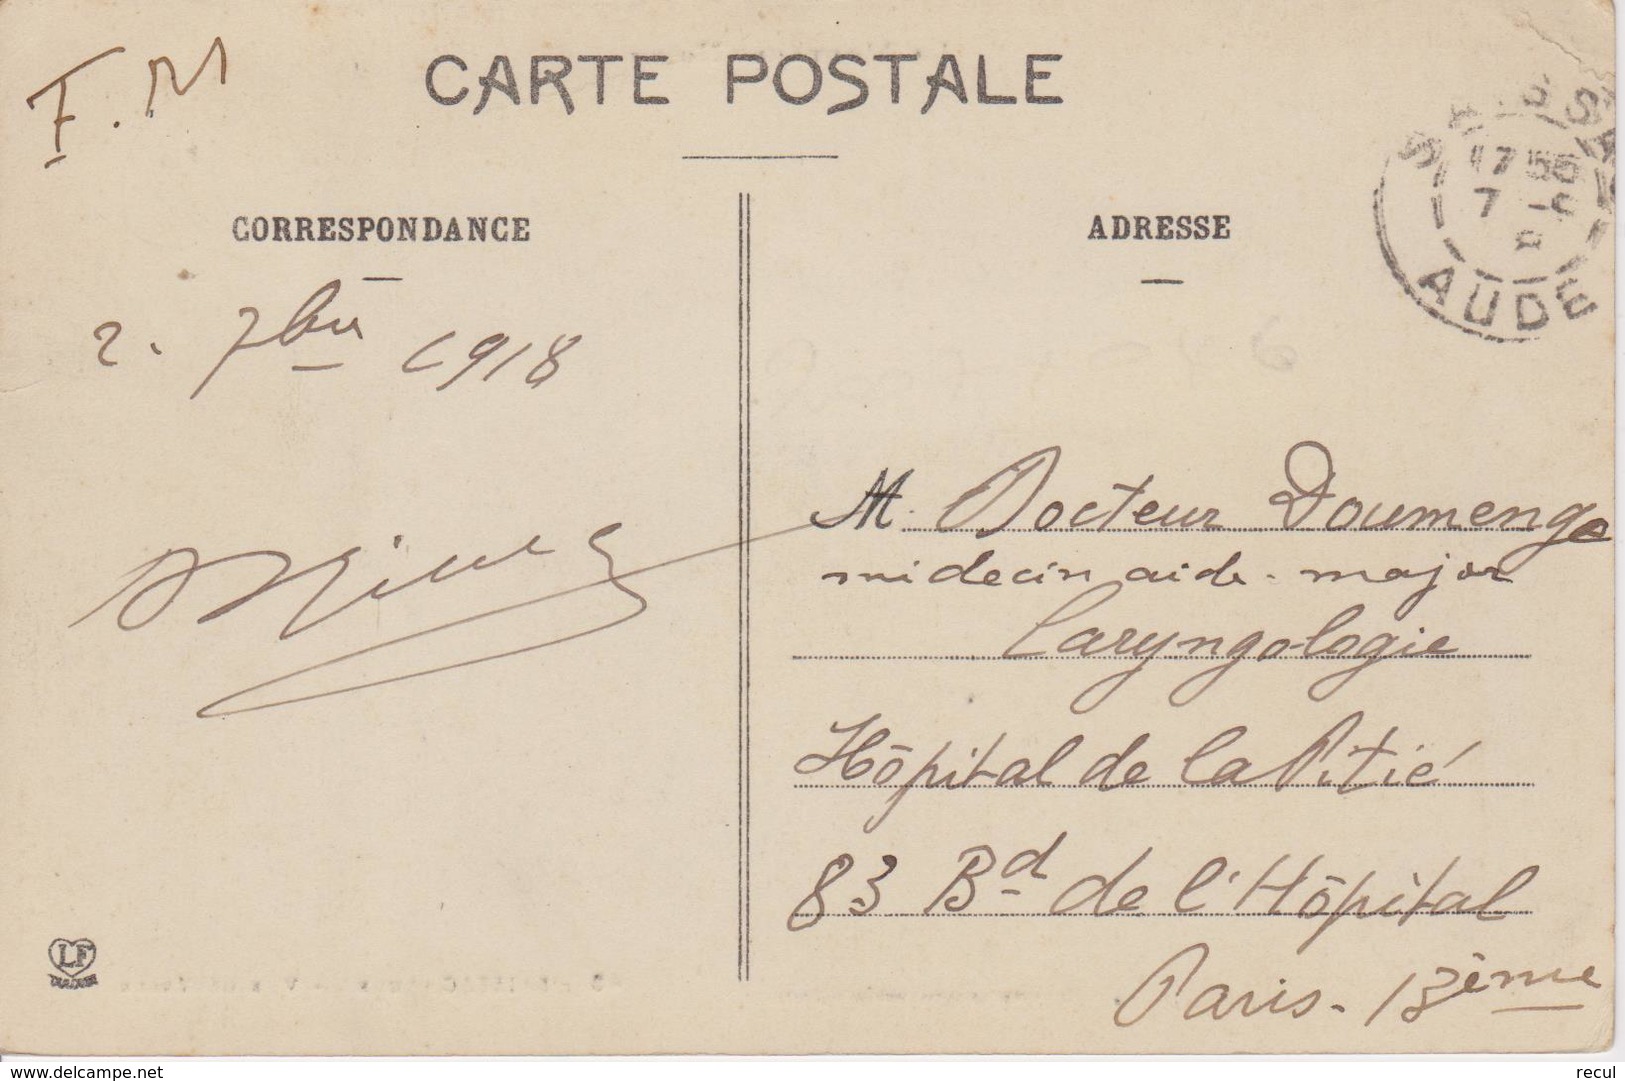 F. M
CARTE POSTALE
17 35
7 -9
AUDE
CORRESPONDANCE
ADRESSE
2. 7bre 1918
M. Docteur Doumenge
médecin aide-major
Laryngologie
Hôpital de la Pitié
83 Bd de l'Hôpital
Paris - 13ème
LF
www.delcampe.net
recul